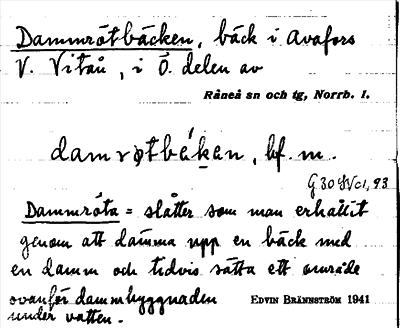 Dammrötbäcken, bäck i Avafors
V. Vitån, i Ö. delen av
Råneå sn och tg, Norrb. l.
damrøtbäkan, bf. m.
G 30
Dammröta = slåtter som man erhållit
genom att dämma upp en bäck med
en damm och tidvis sätta ett område
ovanför dammbyggnaden
EDVIN BRÄNNSTRÖM 1941
under vatten.